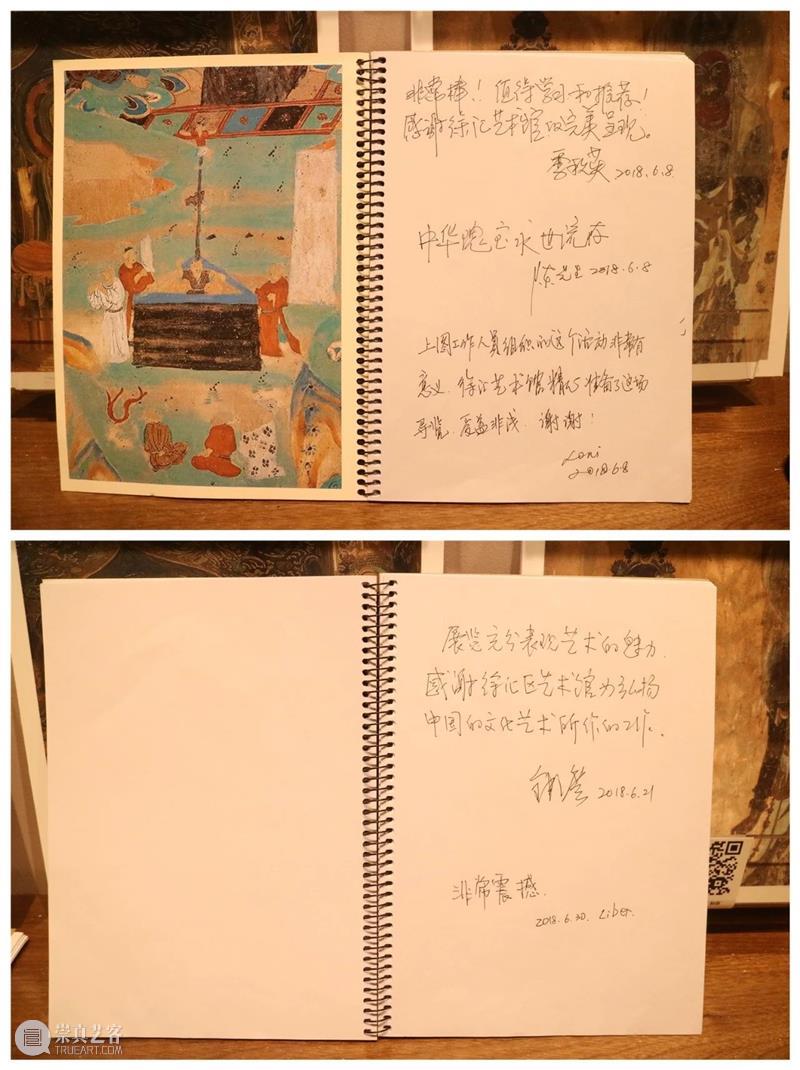 非常棒！值得学习和推荐！
感谢徐汇艺术馆的完美呈现。
2018.6.8
中华瑰宝永世流存
陈先生 2018.6.8
上图工作人员组织的这个活动非常有
意义，徐汇艺术馆精心准备了这场
导览，受益匪浅．谢谢！
Loni
2018.6.8
展览充分表现艺术的魅力．
感谢徐汇区艺术馆为弘扬
中国的文化艺术所作的工作。
2018.6.21
非常震撼．
2018.6.30. Liber.
崇真艺客
TRUEART.COM